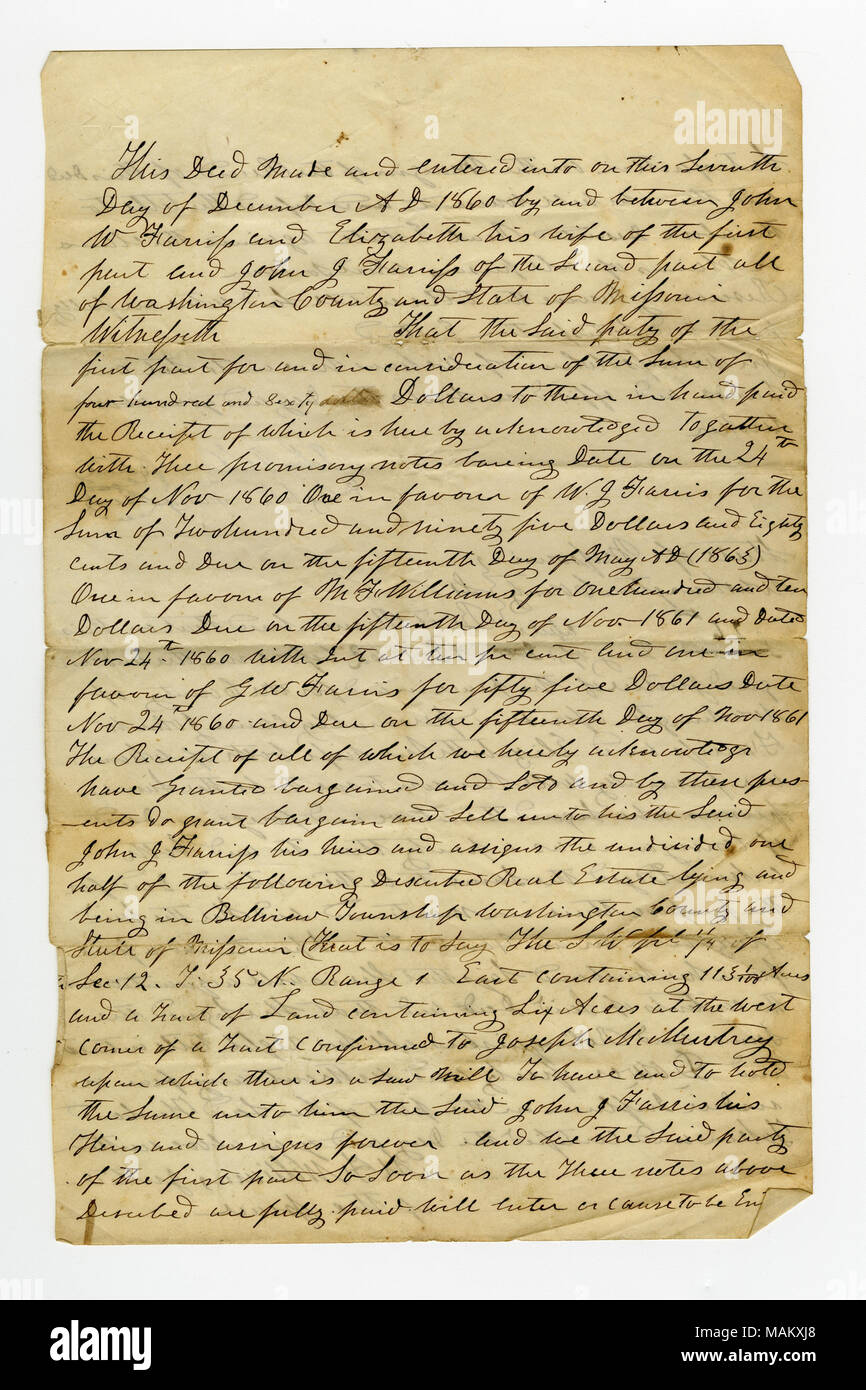 This Deed Made and entered into on this Seventh
Day of December A D 1860 by and between John
W Farriss and Elizabeth his wife of the first
part and John J Farriss of the Second part all
of Washington County and State of Missouri
Witnesseth That the Said party of the
first part for and in consideration of the Sum of
four hundred and Sexty Dollars to them in hand paid
the Receipt of which is here by acknowledged Togather
with Thee promisory notes bareing Date on the 24th
Day of Nov 1860 One in favour of W. J Farris for the
Sum of Two hundred and ninety five Dollars and Eighty
cents and Due on the fifteenth Day of May AD
One in favour of M F Williams for One hundred and ten
Dollars Due on the fifteenth Day of Nov. 1861 and Dated
Nov 24th 1860 with Int at ten pr cent and one in
favour of G W Farris for fifty five Dollars Date
Nov 24th 1860 and Due on the fifteenth Day of Nov 1861
The Receipt of all of which we hereby acknowledge
have Granted bargained and Sold and by these pres-
-ents do grant bargain and Sell unto his the Said
John J Farriss his heirs and assigns the undivided one
half of the following Described Real Estate lying and
being in Bellview Township Washington County and
State of Missouri (that is to Say The S W frl 1/4 of
Sec 12. T. 35 N. Range 1 East containing 113 Acres
and a Tract of Land containing Six Acres at the west
corner of a Tract Confirmed to Joseph McMurtrey
upon which there is a Saw Mill To have and to hold
the Same unto him the Said John J Farris his
Heirs and assigns forever. and we the Said party
of the first part So Soon as the Three notes above
Described are fully paid will enter or cause to be En
alamy
Image ID: MAKXJ8
www.alamy.com